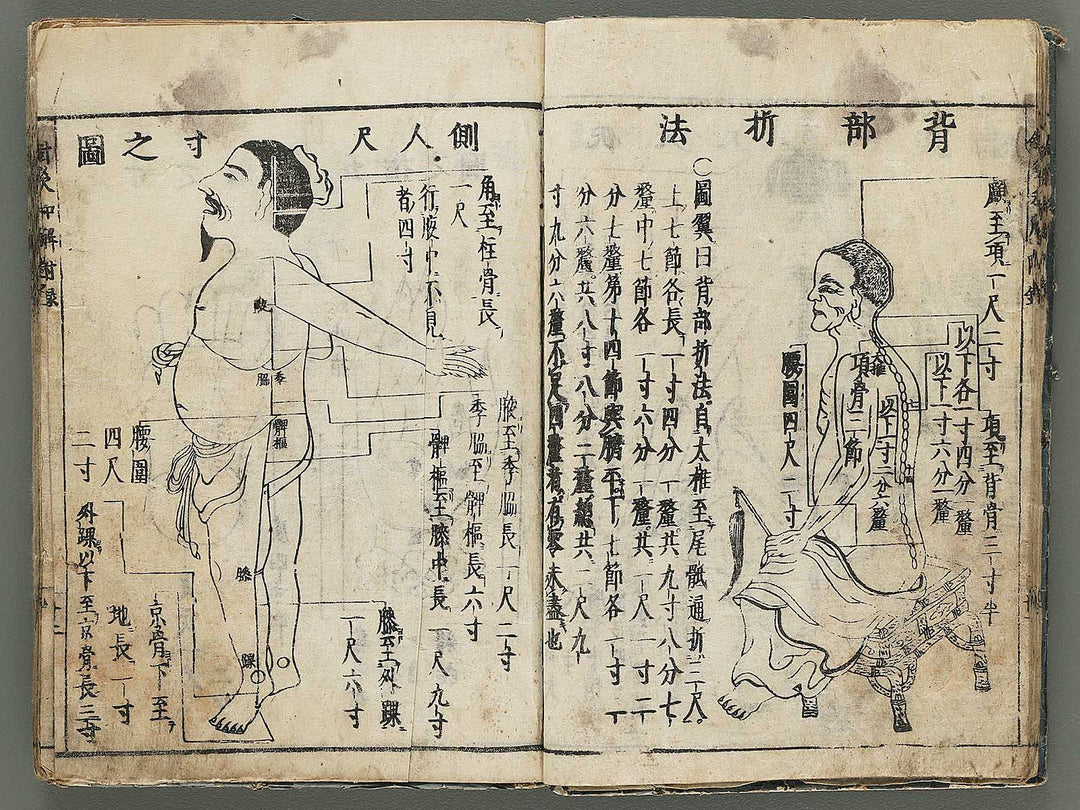 背部折法
顱至項一尺二寸
項至背骨二寸半
以下各一寸四分一釐
以下一寸六分一釐
以下一寸二分一釐
大椎
項骨三節
腰圍四尺二寸
〇圖翼曰背部折法自大椎至尾骶通折三尺
上七節各長一寸四分一釐共九寸八分七
釐中七節各一寸六分一釐共一尺一寸二
分七釐第十四節與臍平下七節各一寸二
分六釐共八寸八分二釐總共二尺九
寸九分六釐不足四釐者有零未盡也
側人尺寸之圖
角至柱骨長
一尺
行腋中不見
者四寸
腋至季脇長一尺二寸
季脇至髀樞長六寸
髀樞至膝中長一尺九寸
膝至外踝
一尺六寸
腋
季
脇
髀樞
膝
踝
腰圍
四尺
二寸
京骨下至
地長一寸
外踝以下至京骨長三寸